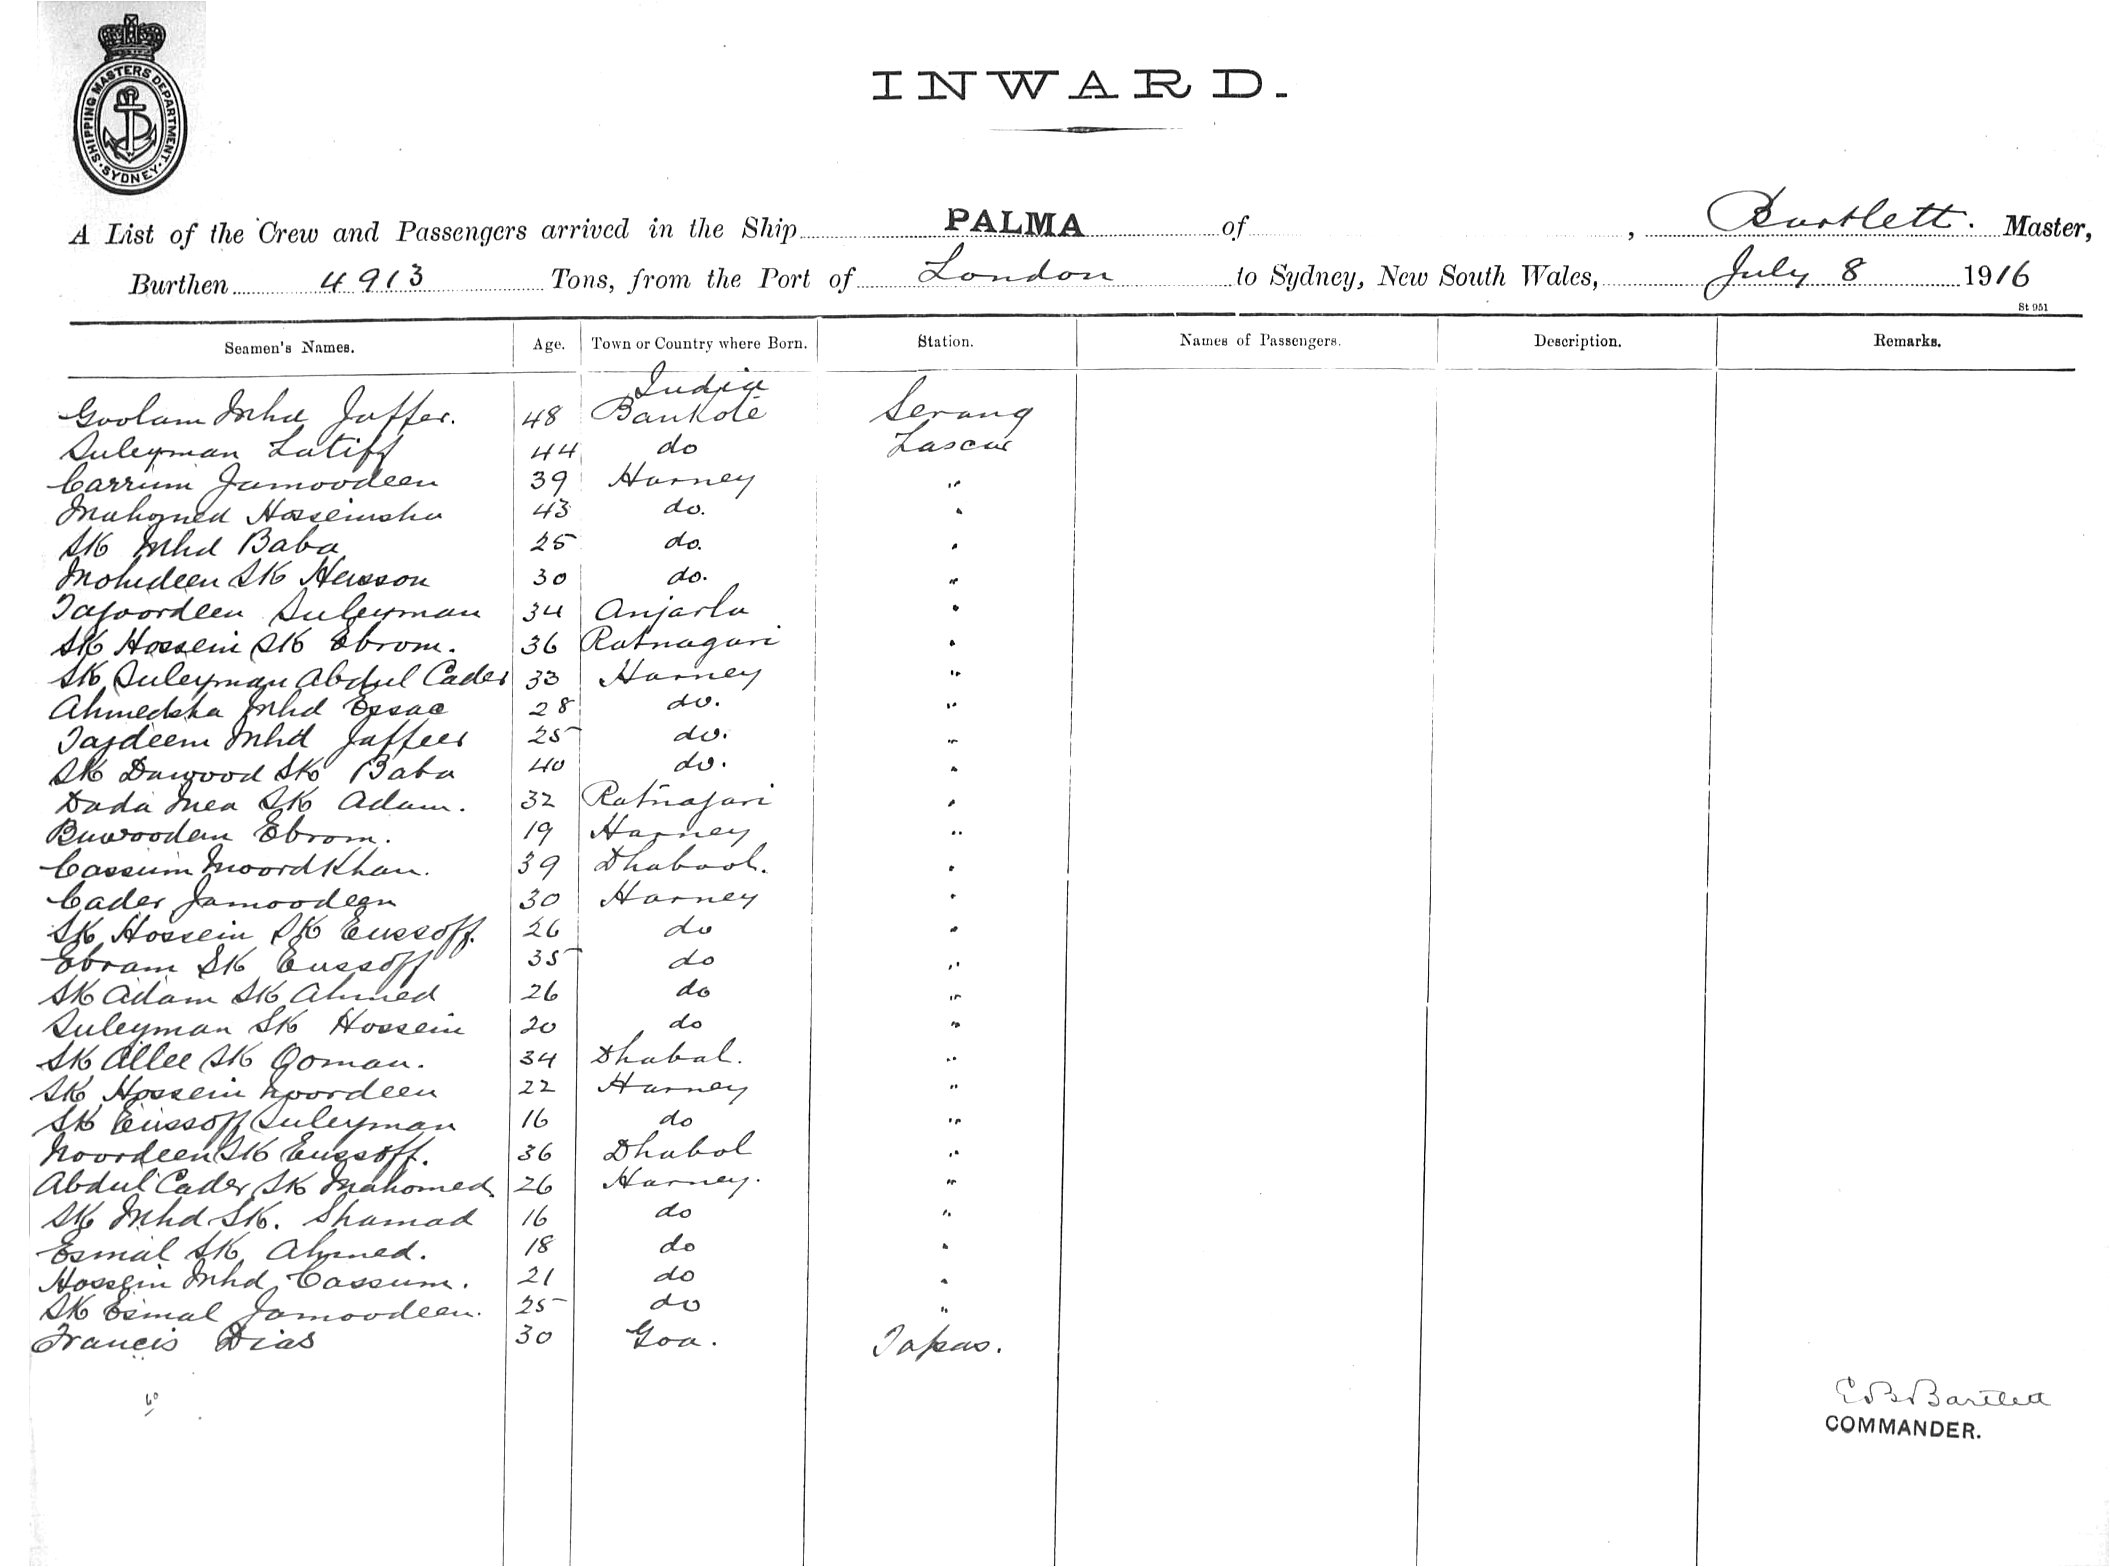 SHIPPING MASTERS DEPARTMENT. SYDNEY
INWARD.
A List of the Crew and Passengers arrived in the Ship PALMA of , Bartlett. Master,
Burthen 4913 Tons, from the Port of London to Sydney, New South Wales, July 8 1916
St 951
Seamen's Names. Age. Town or Country where Born. Station. Names of Passengers. Description. Remarks.
India
Goolam Mhd Jaffer. 48 Bankote Serang
Suleyman Latiff 44 do Lascar
Carrim Jamoodeen 39 Harney "
Mahomed Hosseinsha 43 do. "
SK Mhd Baba 25 do. "
Mohideen SK Hasson 30 do. "
Tajoordeen Suleyman 34 Anjarla "
SK Hossein SK Ebrom. 36 Ratnagari "
SK Suleyman Abdul Cader 33 Harney "
Ahmedsha Mhd Essac 28 do. "
Tajdeem Mhd Jaffeer 25 do. "
SK Dawood SK Baba 40 do. "
Dada Mea SK Adam. 32 Ratnajari "
Buwoodeen Ebrom. 19 Harney "
Cassim Moord Khan. 39 Dhabool. "
Cader Jamoodeen 30 Harney "
SK Hossein SK Eussoff. 26 do "
Ebram SK Eussoff 35 do "
SK Adam SK Ahmed 26 do "
Suleyman SK Hossein 20 do "
SK Allee SK Ooman. 34 Dhabal. "
SK Hossein Noordeen 22 Harney "
SK Eussoff Suleyman 16 do "
Noordeen SK Eussoff. 36 Dhabol "
Abdul Cader SK Mahomed. 26 Harney. "
SK Mhd SK. Shamad 16 do "
Esmal SK Ahmed. 18 do "
Hossein Mhd Cassum. 21 do "
SK Esmal Jamoodeen. 25 do "
Francis Dias 30 Goa. Topas.
E B Bartlett
COMMANDER.